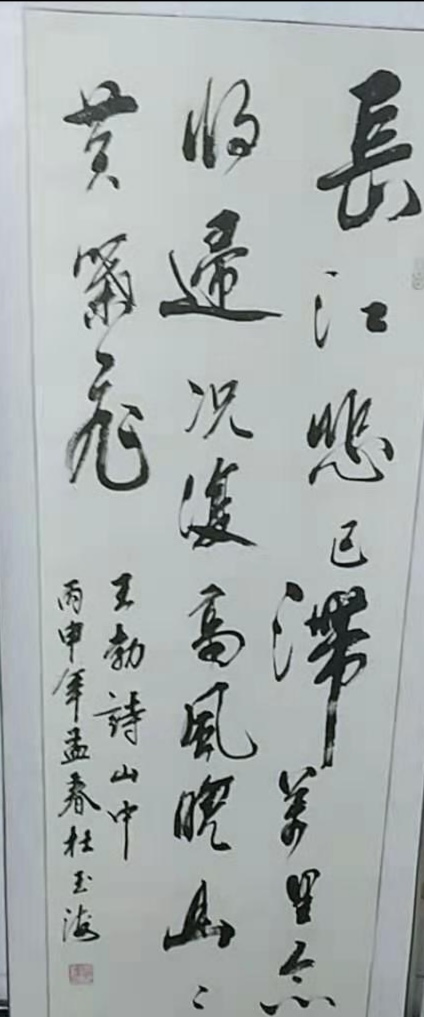 長江悲已滯萬里念
將歸況復高風晚山〻
黄葉飛
王勃詩山中
丙申年孟春杜玉海